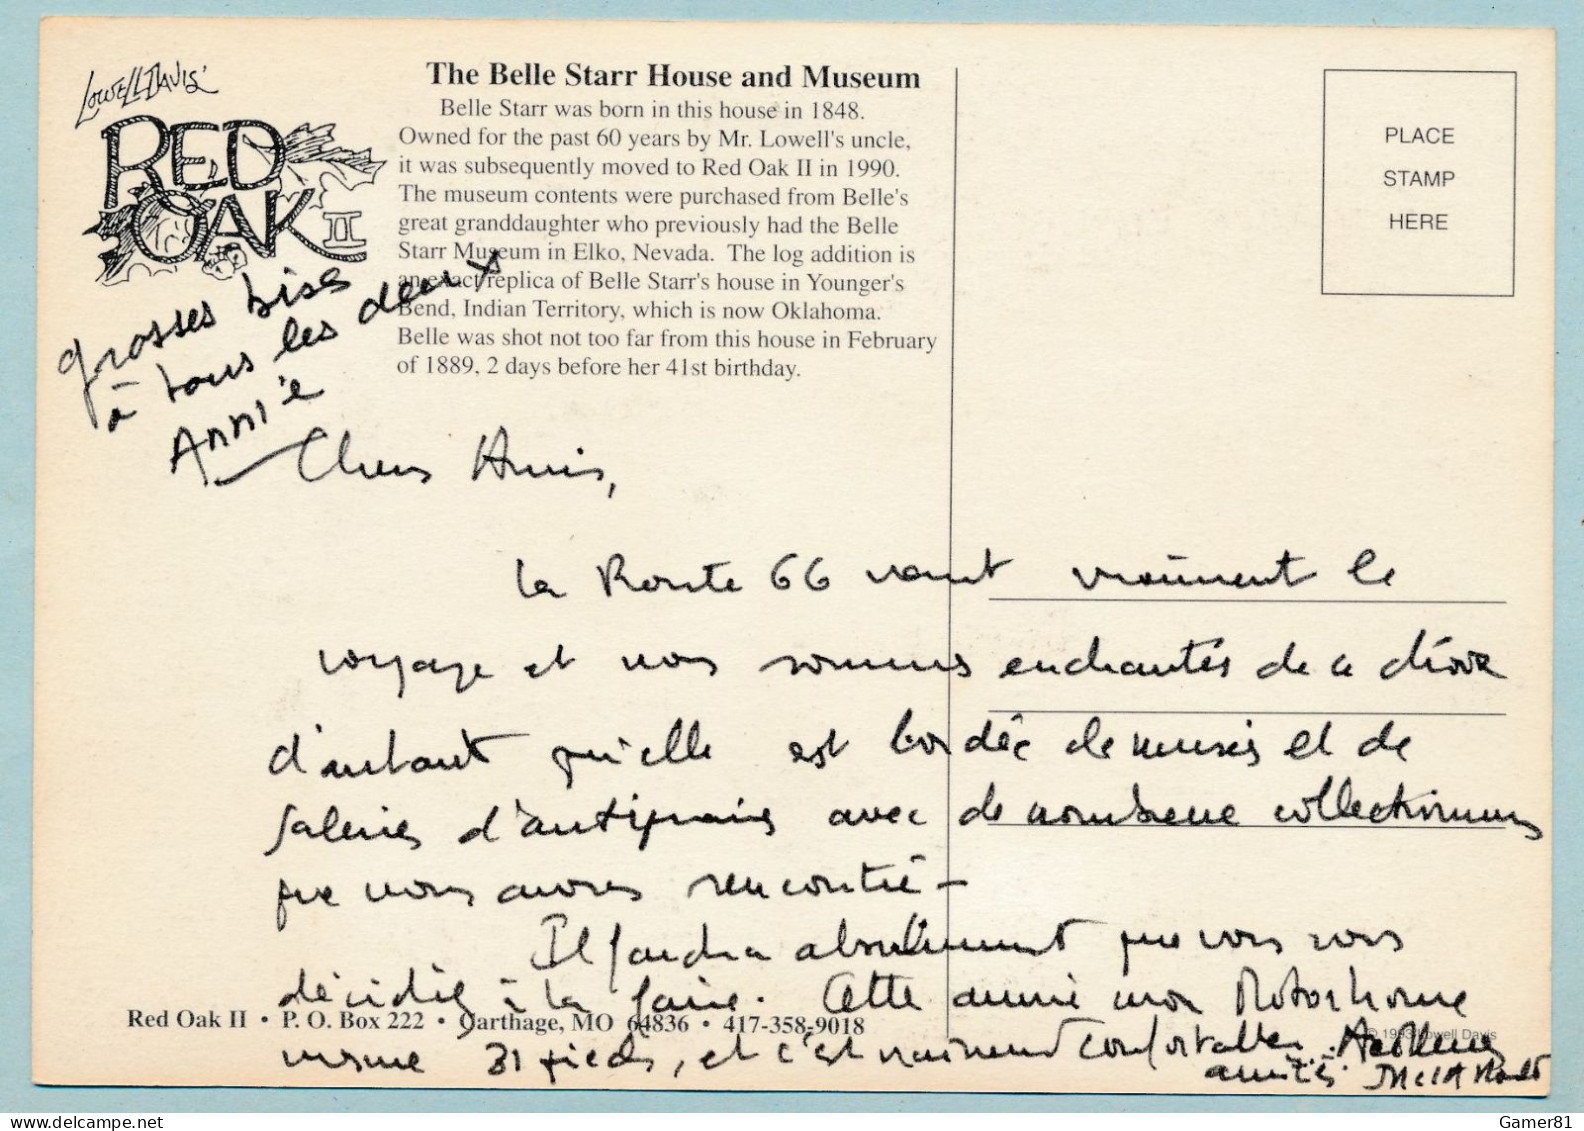 Lowell Davis'
RED
OAK II
The Belle Starr House and Museum
Belle Starr was born in this house in 1848.
Owned for the past 60 years by Mr. Lowell's uncle,
it was subsequently moved to Red Oak II in 1990.
The museum contents were purchased from Belle's
great granddaughter who previously had the Belle
Starr Museum in Elko, Nevada. The log addition is
an exact replica of Belle Starr's house in Younger's
Bend, Indian Territory, which is now Oklahoma.
Belle was shot not too far from this house in February
of 1889, 2 days before her 41st birthday.
PLACE
STAMP
HERE
grosses bises
à tous les deux
Annie
Chers Amis,
La Route 66 vaut vraiment le
voyage et nous sommes enchantés de ce choix
d'autant qu'elle est bordée de musées et de
galeries d'antiquaires avec de nombreux collectionneurs
que nous avons rencontré -
Il faudra absolument que vous vous
décidiez à la faire. Cette année mon Motorhome
mesure 31 pieds, et c'est vraiment confortable.
amitiés.
Red Oak II • P. O. Box 222 • Carthage, MO 64836 • 417-358-9018
© 1993 Lowell Davis
Gamer81